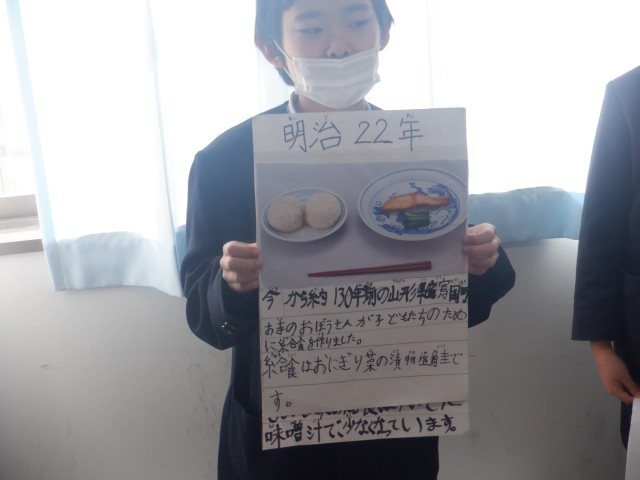 明治22年
今から約130年前の山形県鶴岡町
お寺のおぼうさんが子どもたちのため
に給食を作りました。
給食はおにぎり菜の漬物塩鮭で
す。
味噌汁で、少なくなっています。